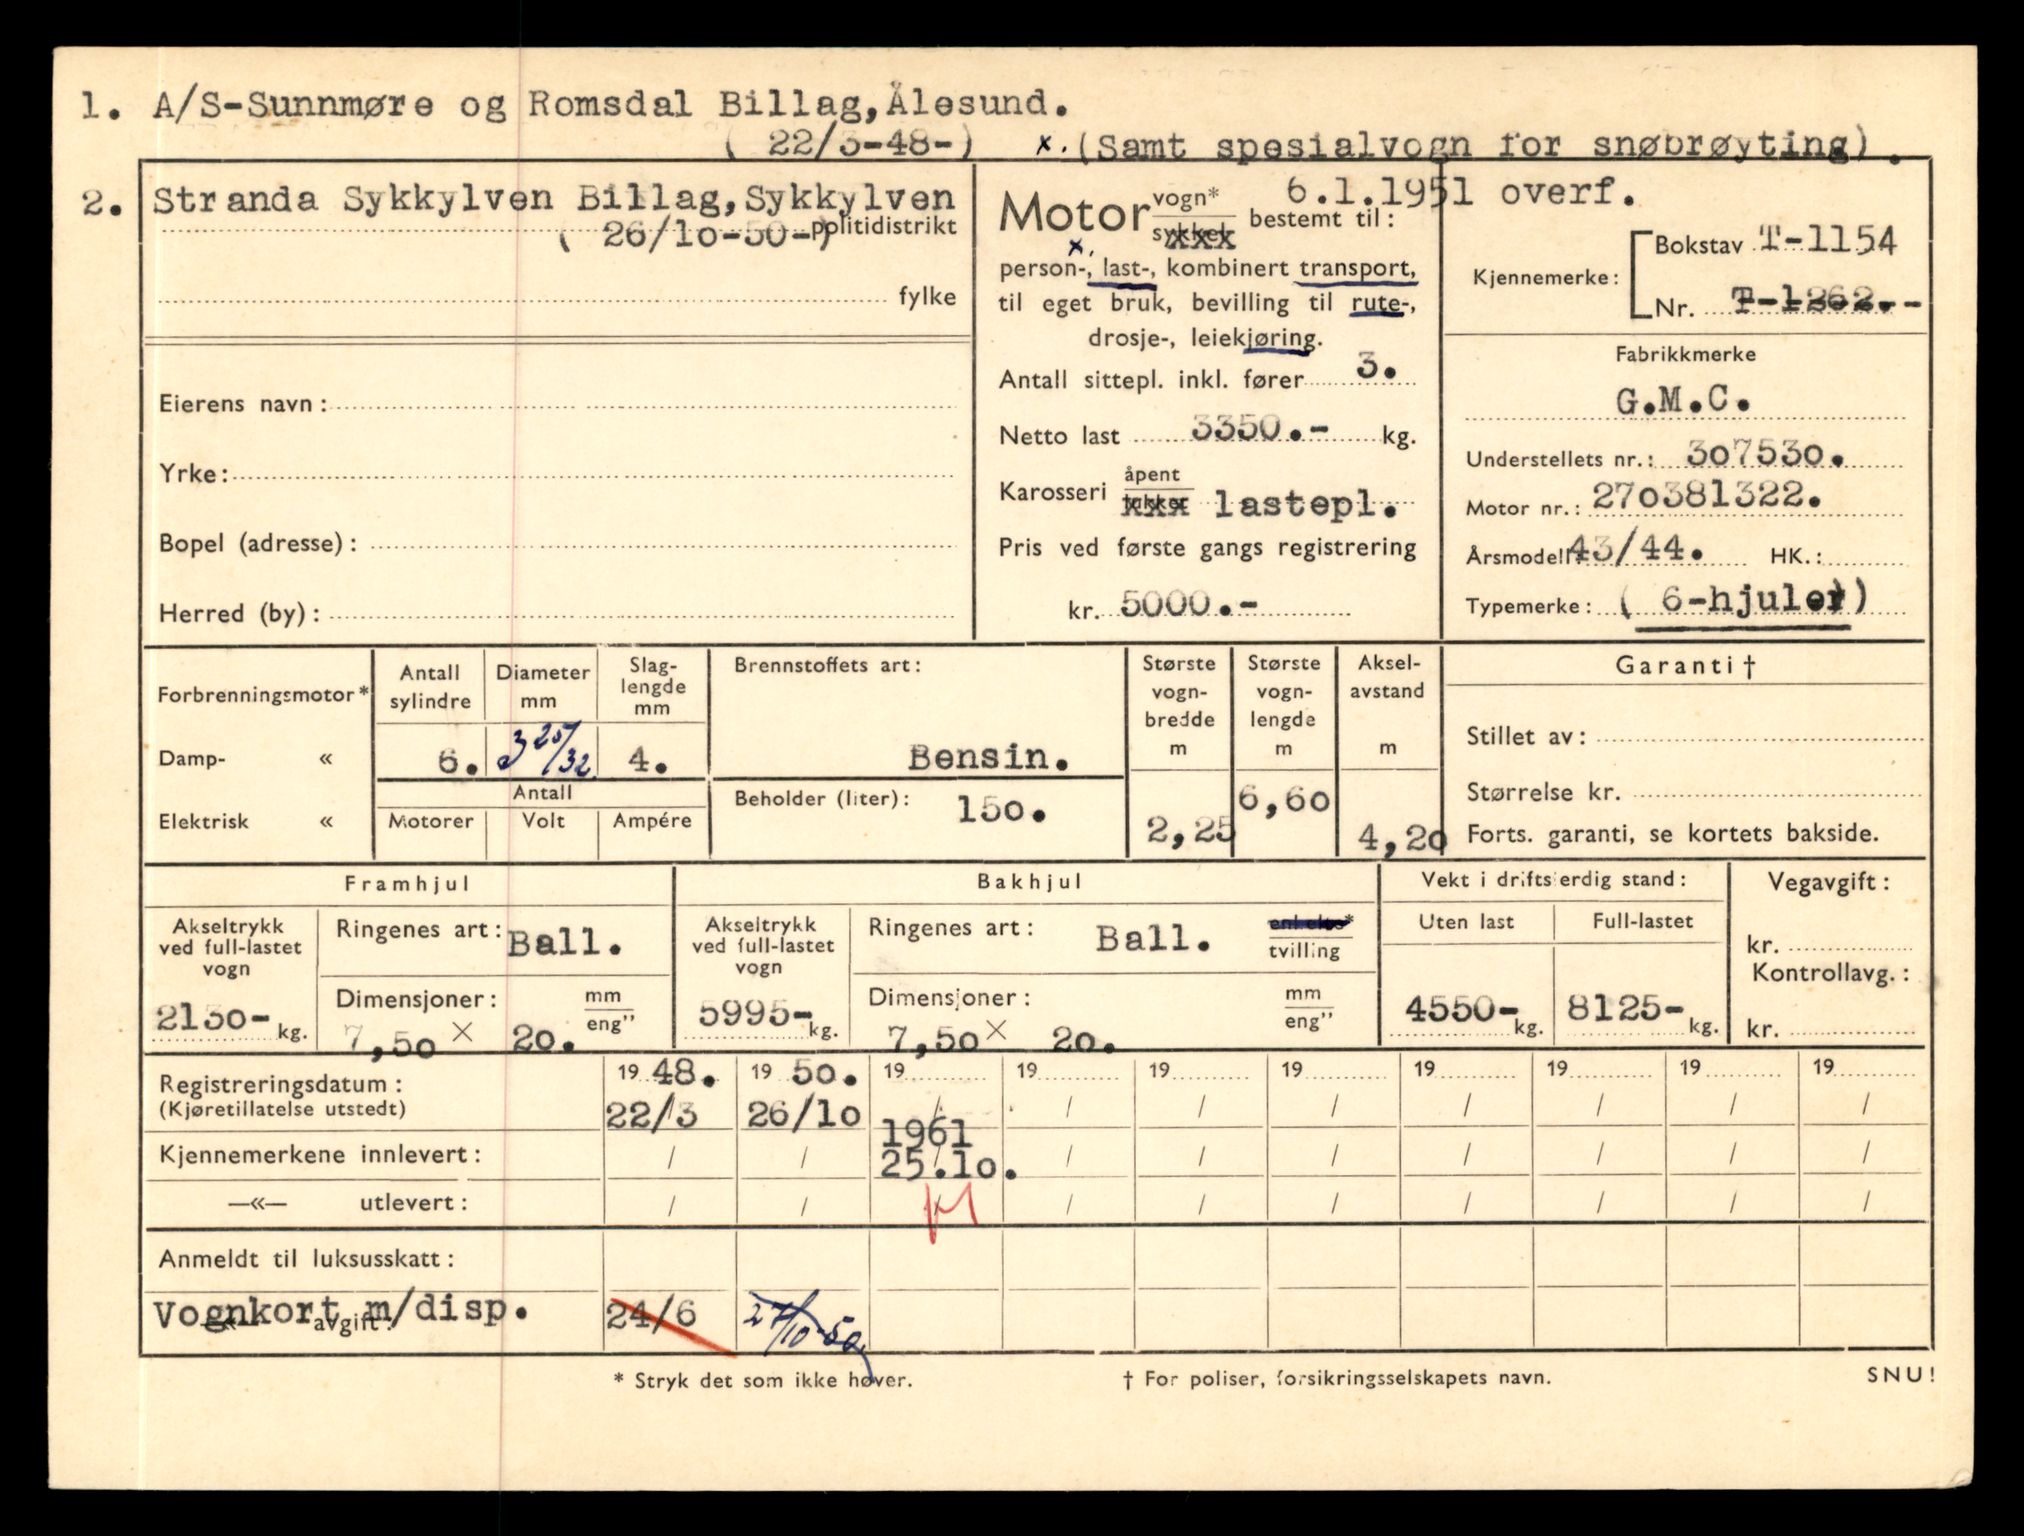 1. A/S-Sunnmøre og Romsdal Billag, Ålesund.
( 22/3-48-) x. (Samt spesialvogn for snøbrøyting).
2. Stranda Sykkylven Billag, Sykkylven
( 26/10-50-) politidistrikt
fylke
Eierens navn:
Yrke:
Bopel (adresse):
Herred (by):
6.1.1951 overf.
Motor vogn* bestemt til:
sykkel xxx
x.
person-, last-, kombinert transport,
til eget bruk, bevilling til rute-,
drosje-, leiekjøring.
Antall sittepl. inkl. fører 3.
Netto last 3350.- kg.
Karosseri åpent
lukket xxx lastepl.
Pris ved første gangs registrering
kr. 5000.-
Kjennemerke: Bokstav T-1154
Nr. T-1262.-
Fabrikkmerke
G.M.C.
Understellets nr.: 307530.
Motor nr.: 270381322.
Årsmodell: 43/44. HK.:
Typemerke: ( 6-hjuler)
Forbrenningsmotor*
Damp- «
Elektrisk «
Antall sylindre
6.
Diameter mm
3 25/32
Slaglengde mm
4.
Antall
Motorer Volt Ampére
Brennstoffets art:
Bensin.
Beholder (liter): 150.
Største vognbredde m
2,25
Største vognlengde m
6,60
Akselavstand m
4,20
Garanti †
Stillet av:
Størrelse kr.
Forts. garanti, se kortets bakside.
Framhjul
Akseltrykk ved full-lastet vogn
2130- kg.
Ringenes art: Ball.
Dimensjoner: mm
eng"
7,50 × 20.
Bakhjul
Akseltrykk ved full-lastet vogn
5995- kg.
Ringenes art: Ball. enkelte*
tvilling
Dimensjoner: mm
eng"
7,50 × 20.
Vekt i driftsferdig stand:
Uten last Full-lastet
4550- kg. 8125- kg.
Vegavgift:
kr.
Kontrollavg.:
kr.
Registreringsdatum: 19 48. 19 50. 19 19 19 19 19 19 19 19
(Kjøretillatelse utstedt) 22/3 26/10 / / / / / / / /
1961
Kjennemerkene innlevert: / / 25.10. / / / / / / /
—«— utlevert: / / / / / / / / / /
Anmeldt til luksusskatt:
Vognkort m/disp. 24/6 27/10-50
—«— avgift:
* Stryk det som ikke høver. † For poliser, forsikringsselskapets navn. SNU!